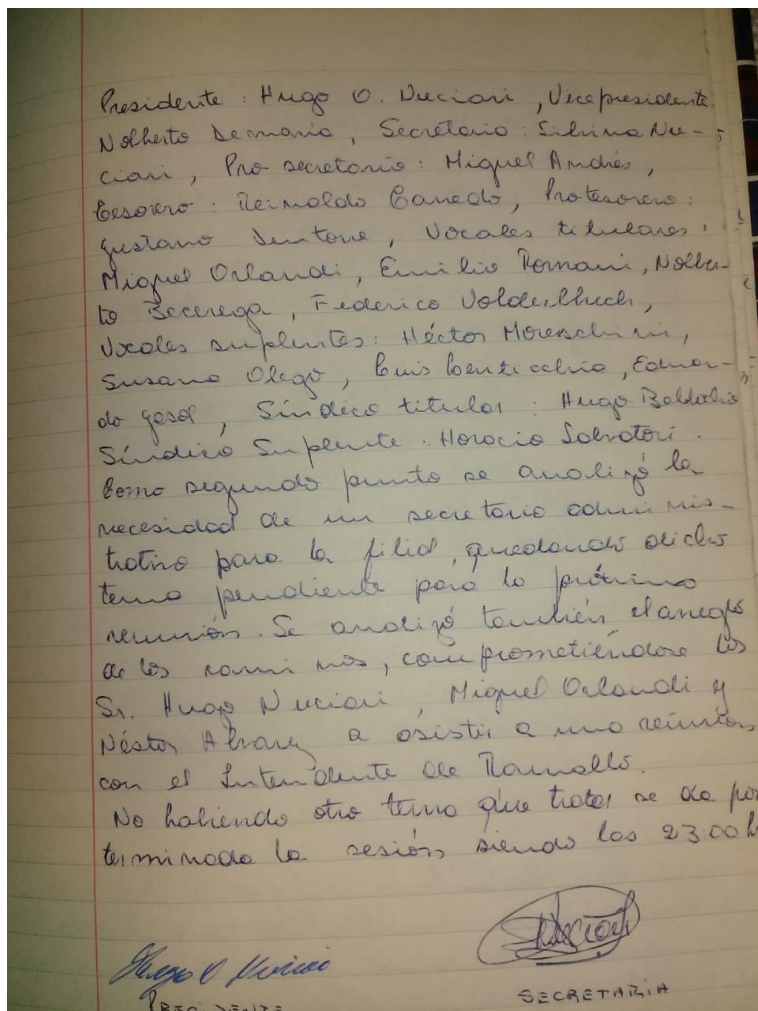 Presidente : Hugo O. Nuciari , Vicepresidente
Nolberto Demaria , Secretario : Silvina Nu-
ciari , Pro secretario : Miguel Andrés ,
Tesorero : Reinaldo Canedo , Protesorero :
Gustavo , Vocales titulares :
Miguel Orlandi , Emilio Romani , Nolber-
to Becerega , Federico
Vocales suplentes : Héctor Moreschini ,
Susana , Luis Conticchio , Eduar-
do Gasol , Síndico titular : Hugo
Síndico Suplente . Horacio Salvatori .
Como segundo punto se analizó la
necesidad de un secretario adminis-
trativo para la filial , quedando dicho
tema pendiente para la próxima
reunión . Se analizó también el arreglo
de los caminos , comprometiéndose los
Sr. Hugo Nuciari , Miguel Orlandi y
Néstor Alvarez a asistir a una reunión
con el Intendente de Ramallo .
No habiendo otro tema que tratar se da por
terminada la sesión siendo las 23:00 h
Hugo O Nuciari
PRESIDENTE
SECRETARIA